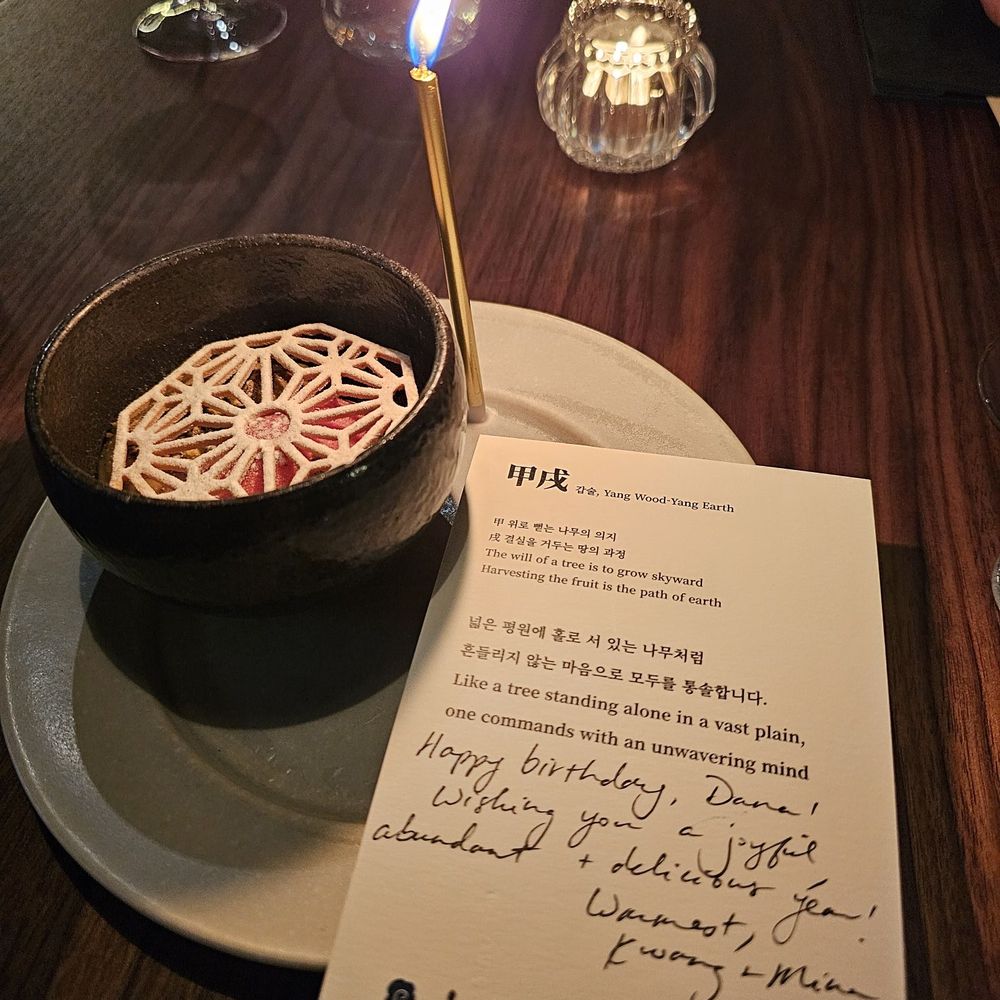 甲戌 갑술, Yang Wood-Yang Earth
甲 위로 뻗는 나무의 의지
戌 결실을 거두는 땅의 과정
The will of a tree is to grow skyward
Harvesting the fruit is the path of earth
넓은 평원에 홀로 서 있는 나무처럼
흔들리지 않는 마음으로 모두를 통솔합니다.
Like a tree standing alone in a vast plain,
one commands with an unwavering mind
Happy birthday, Dana!
Wishing you a joyful
abundant + delicious year!
Warmest,
Kwang + Mina